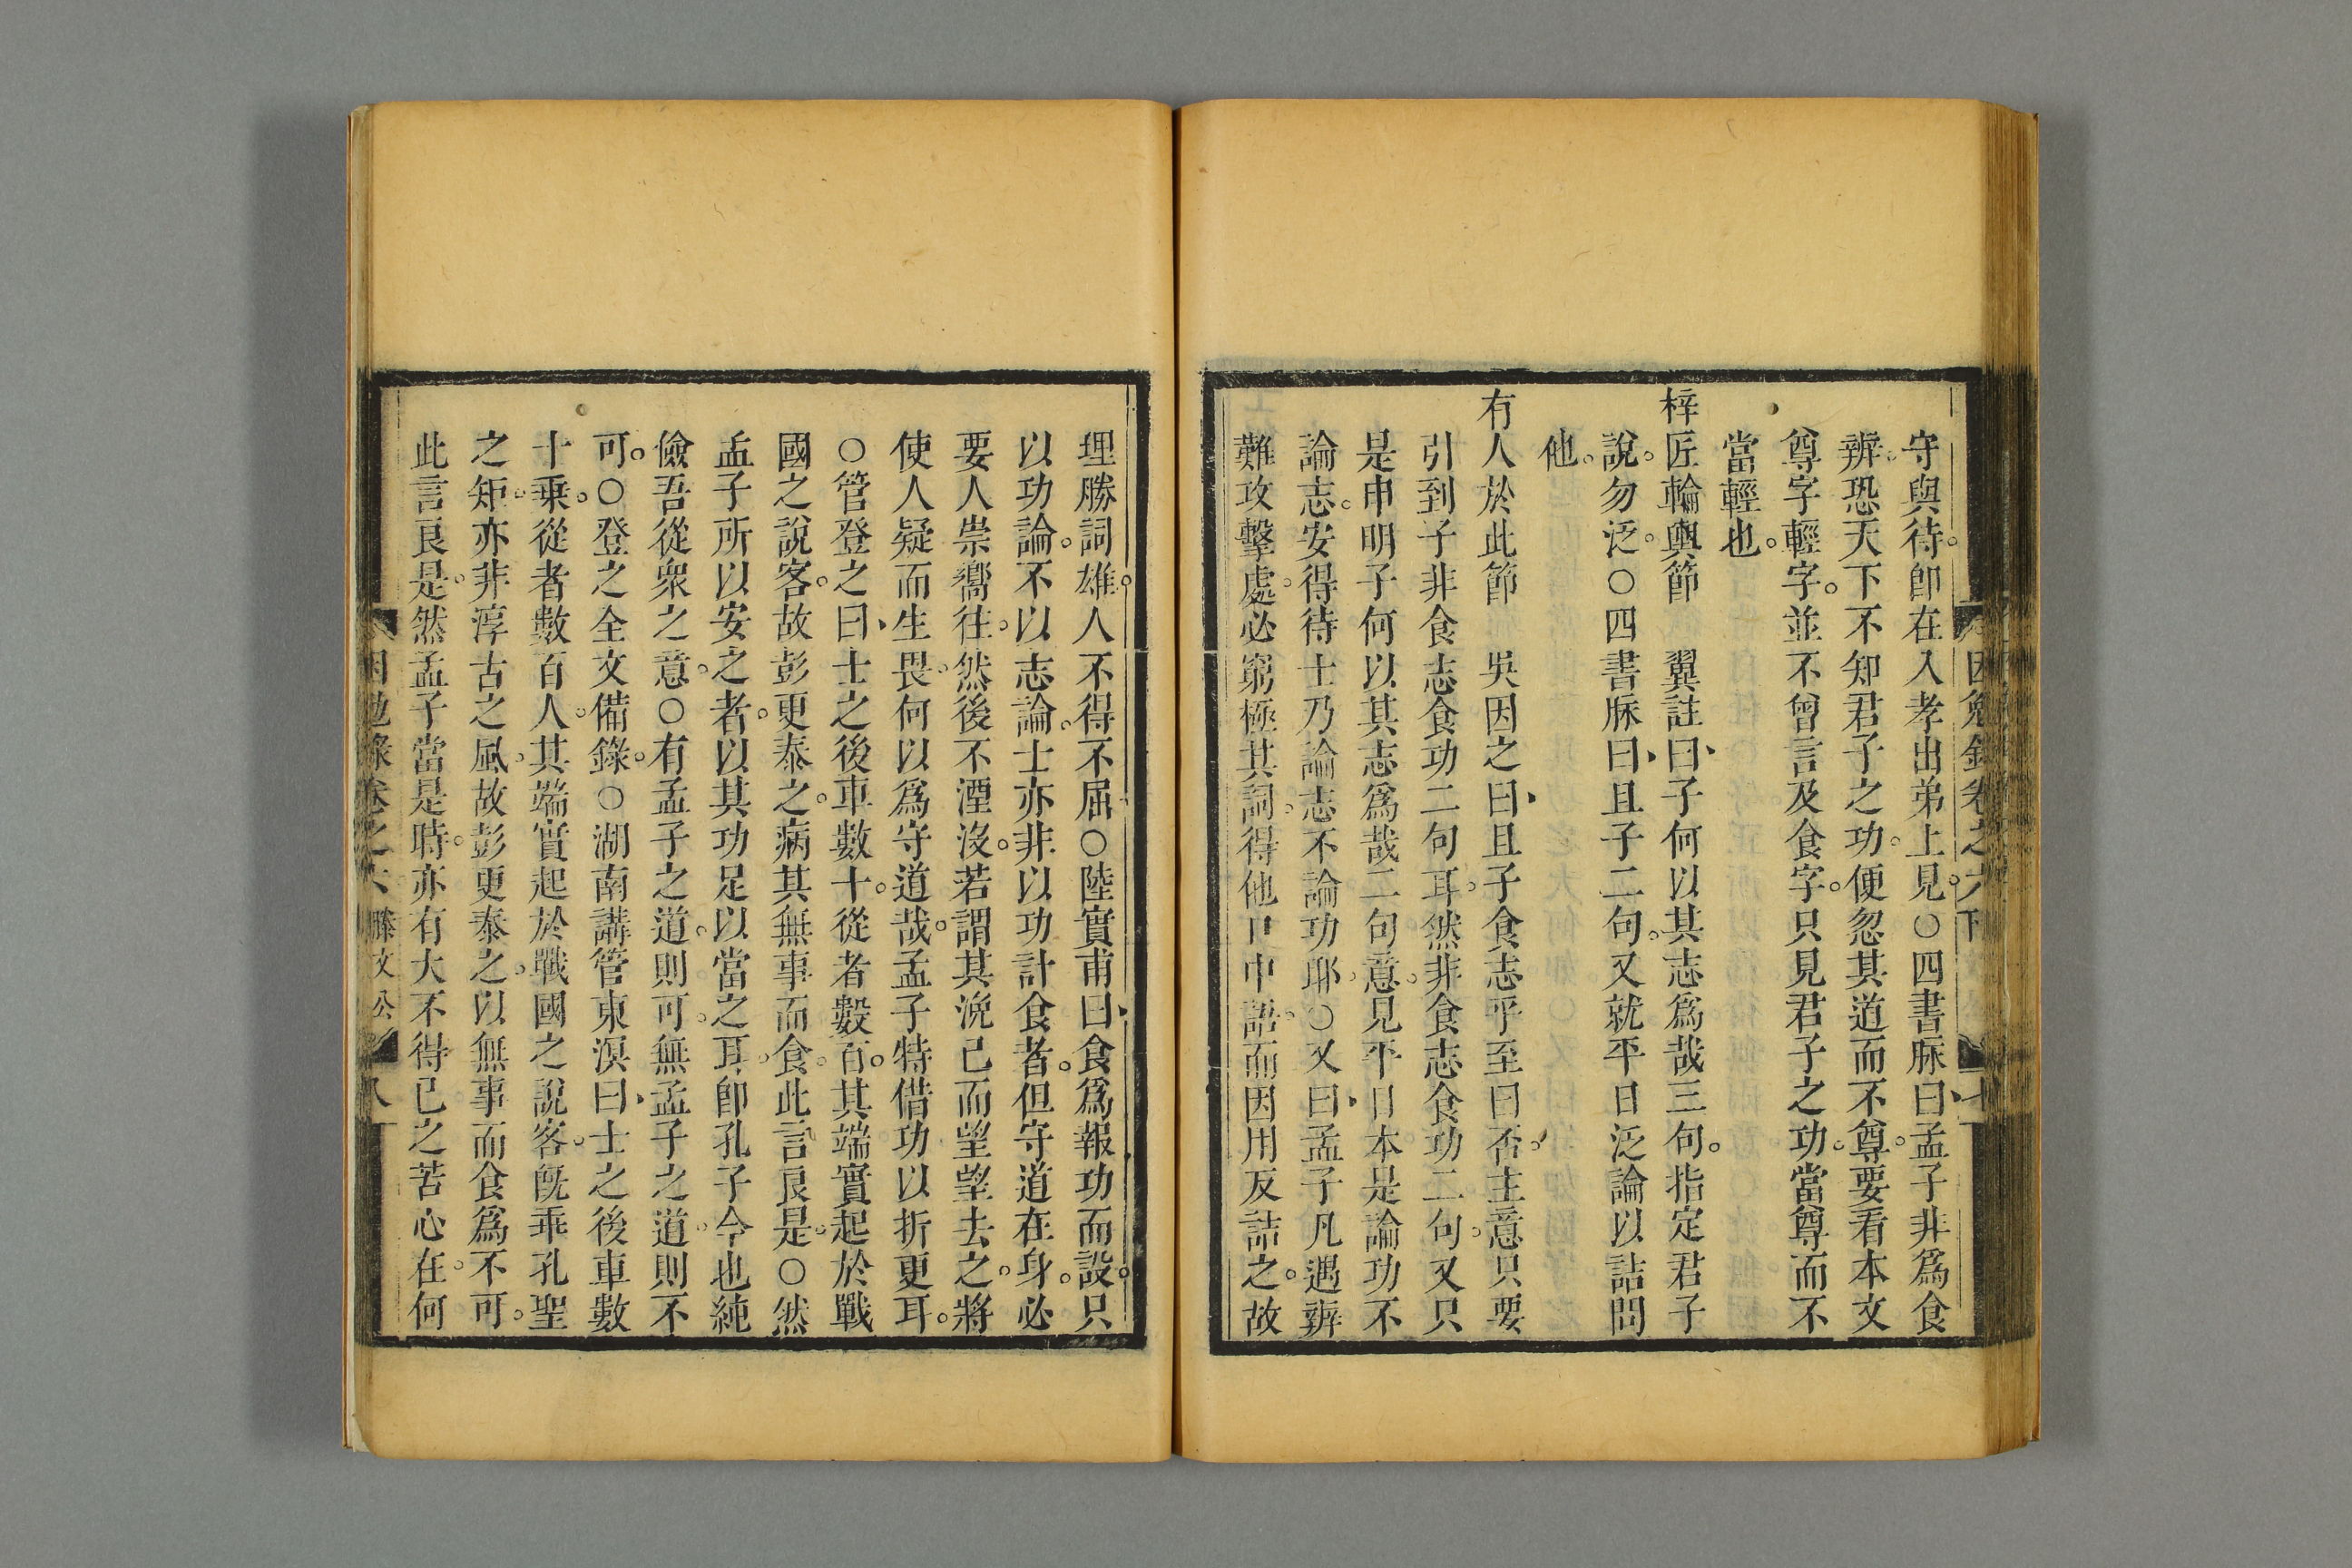 守與待。卽在入孝出弟上見。○四書脈曰、孟子非爲食
辨。恐天下不知君子之功。便忽其道而不尊。要看本文
尊字輕字。並不曾言及食字。只見君子之功。當尊而不
當輕也。
梓匠輪輿節　翼註曰、子何以其志爲哉三句。指定君子
說。勿泛。○四書脈曰、且子二句。又就平日泛論以詰問
他。
有人於此節　吳因之曰、且子食志乎至曰否。主意只要
引到子非食志食功二句耳。然非食志食功二句。又只
是申明子何以其志爲哉二句意。見平日本是論功不
論志。安得待士乃論志不論功耶。○又曰、孟子凡遇辨
難攻擊處。必窮極其詞。得他口中語。而因用反詰之。故
理勝詞雄。人不得不屈○陸實甫曰、食爲報功而設。只
以功論。不以志論。士亦非以功計食者。但守道在身。必
要人崇嚮往。然後不湮沒。若謂其浼己而望望去之。將
使人疑而生畏。何以爲守道哉。孟子特借功以折更耳。
○管登之曰、士之後車數十。從者數百。其端實起於戰
國之說客。故彭更泰之。病其無事而食。此言良是。○然
孟子所以安之者。以其功足以當之耳。卽孔子今也純
儉吾從衆之意。○有孟子之道。則可。無孟子之道。則不
可。○登之全文備錄。○湖南講管東溟曰、士之後車數
十乘。從者數百人。其端實起於戰國之說客。旣乖孔聖
之矩。亦非淳古之風。故彭更泰之。以無事而食爲不可。
此言良是。然孟子當是時。亦有大不得已之苦心在。何
困勉錄卷之六　滕文公　八